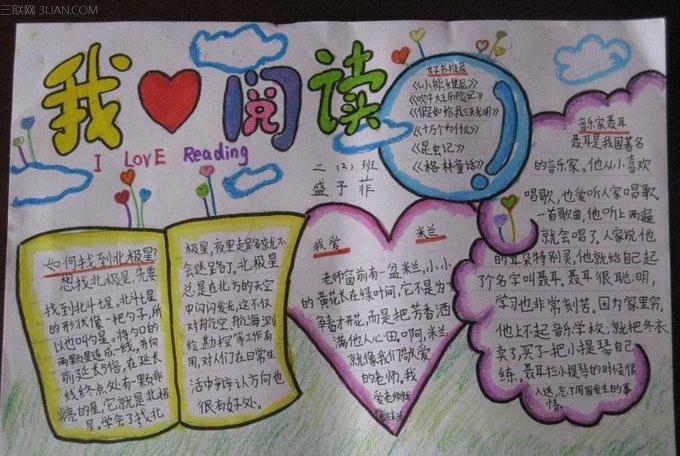 三联网 3LIAN.COM
我 阅读
I LOVE Reading
二(2)班
盛子菲
好书推荐
《小熊维尼》
《吹牛大王历险记》
《假如给我三天光明》
《十万个为什么》
《昆虫记》
《格林童话》
如何找到北极星?
想找北极星,先要
找到北斗七星,北斗七星
的形状像一把勺子,所
以也叫勺星。将勺口的
两颗星连成一线,并向
前延长5倍,在延长
线终点处有一颗非
常亮的星,它就是北极
星。学会了找北
极星,夜里走路就不
会迷路了。北极星
总是在北方的天空
中闪闪发光,这不仅
对航空、航海、测
绘、勘探等工作有
用,对人们在日常生
活中辨认方向也
很有好处。
我爱 米兰
老师窗前有一盆米兰,小小
的黄花长在绿叶间,它不是为了
争春才开花,而是把芳香洒
满他人心田。啊,米兰,
就像我们敬爱
的老师。我
爱老师
音乐家聂耳
聂耳是我国著名
的音乐家。他从小喜欢
唱歌,也爱听人家唱歌。
一首歌曲,他听上两遍
就会唱了。人家说他
的耳朵特别灵,他就给自己起
了个名字叫聂耳。聂耳很聪明,
学习也非常刻苦。因为家里穷,
他上不起音乐学校,就把冬衣
卖了,买了一把小提琴自己
练。聂耳拉小提琴的时候很
入迷,忘了周围发生的事
情。